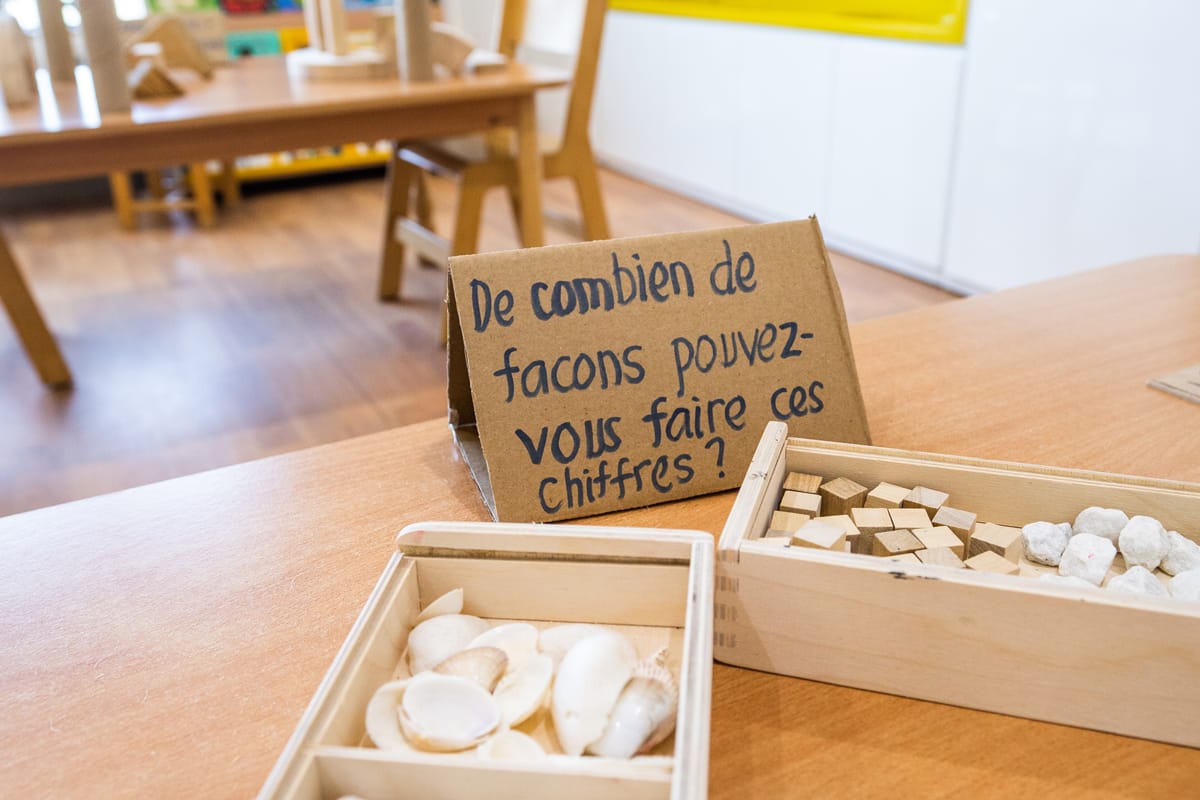 De combien de
facons pouvez-
vous faire ces
chiffres ?